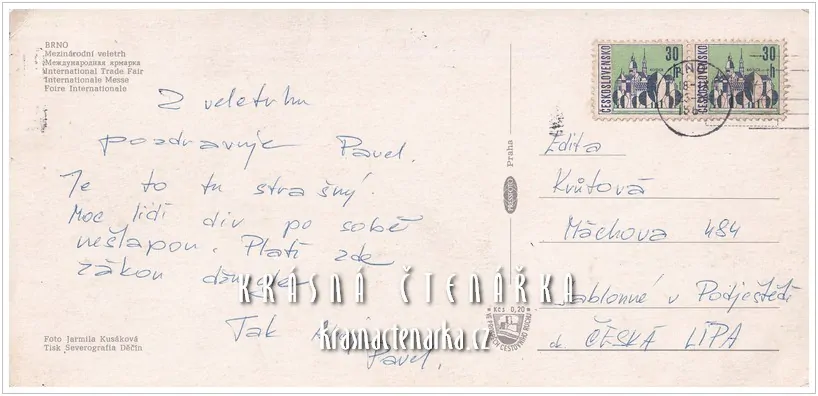 BRNO
Mezinárodní veletrh
Международная ярмарка
International Trade Fair
Internationale Messe
Foire Internationale
Z veletrhu
pozdravuje Pavel.
Je to tu strašný.
Moc lidí div po sobě
nešlapou. Platí zde
zákon džungle
Tak
Pavel.
Foto Jarmila Kusáková
Tisk Severografia Děčín
Praha
PRESSFOTO
Kčs 0,20
ČESKOSLOVENSKO
30
h
ČESKOSLOVENSKO
30
h
Edita
Krůtová
Máchova 484
Jablonné v Podještědí
ČESKÁ LÍPA
KRÁSNÁ ČTENÁŘKA
krasnactenarka.cz